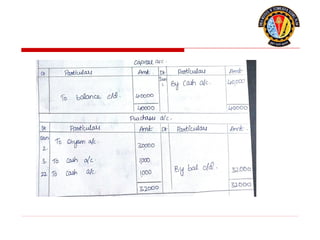 Capital a/c.
Dt Particulars Amt Dt Particulars Amt
Jan 1 By Cash a/c. 40000
To balance c/d. 40000
40000 40000
Purchase a/c.
Dt Particulars Amt Dt Particulars Amt.
Jan
2. To a/c. 30000
3. To Cash a/c 1000
22 To Cash a/c. 1000 By bal c/d. 32000
32000 32000